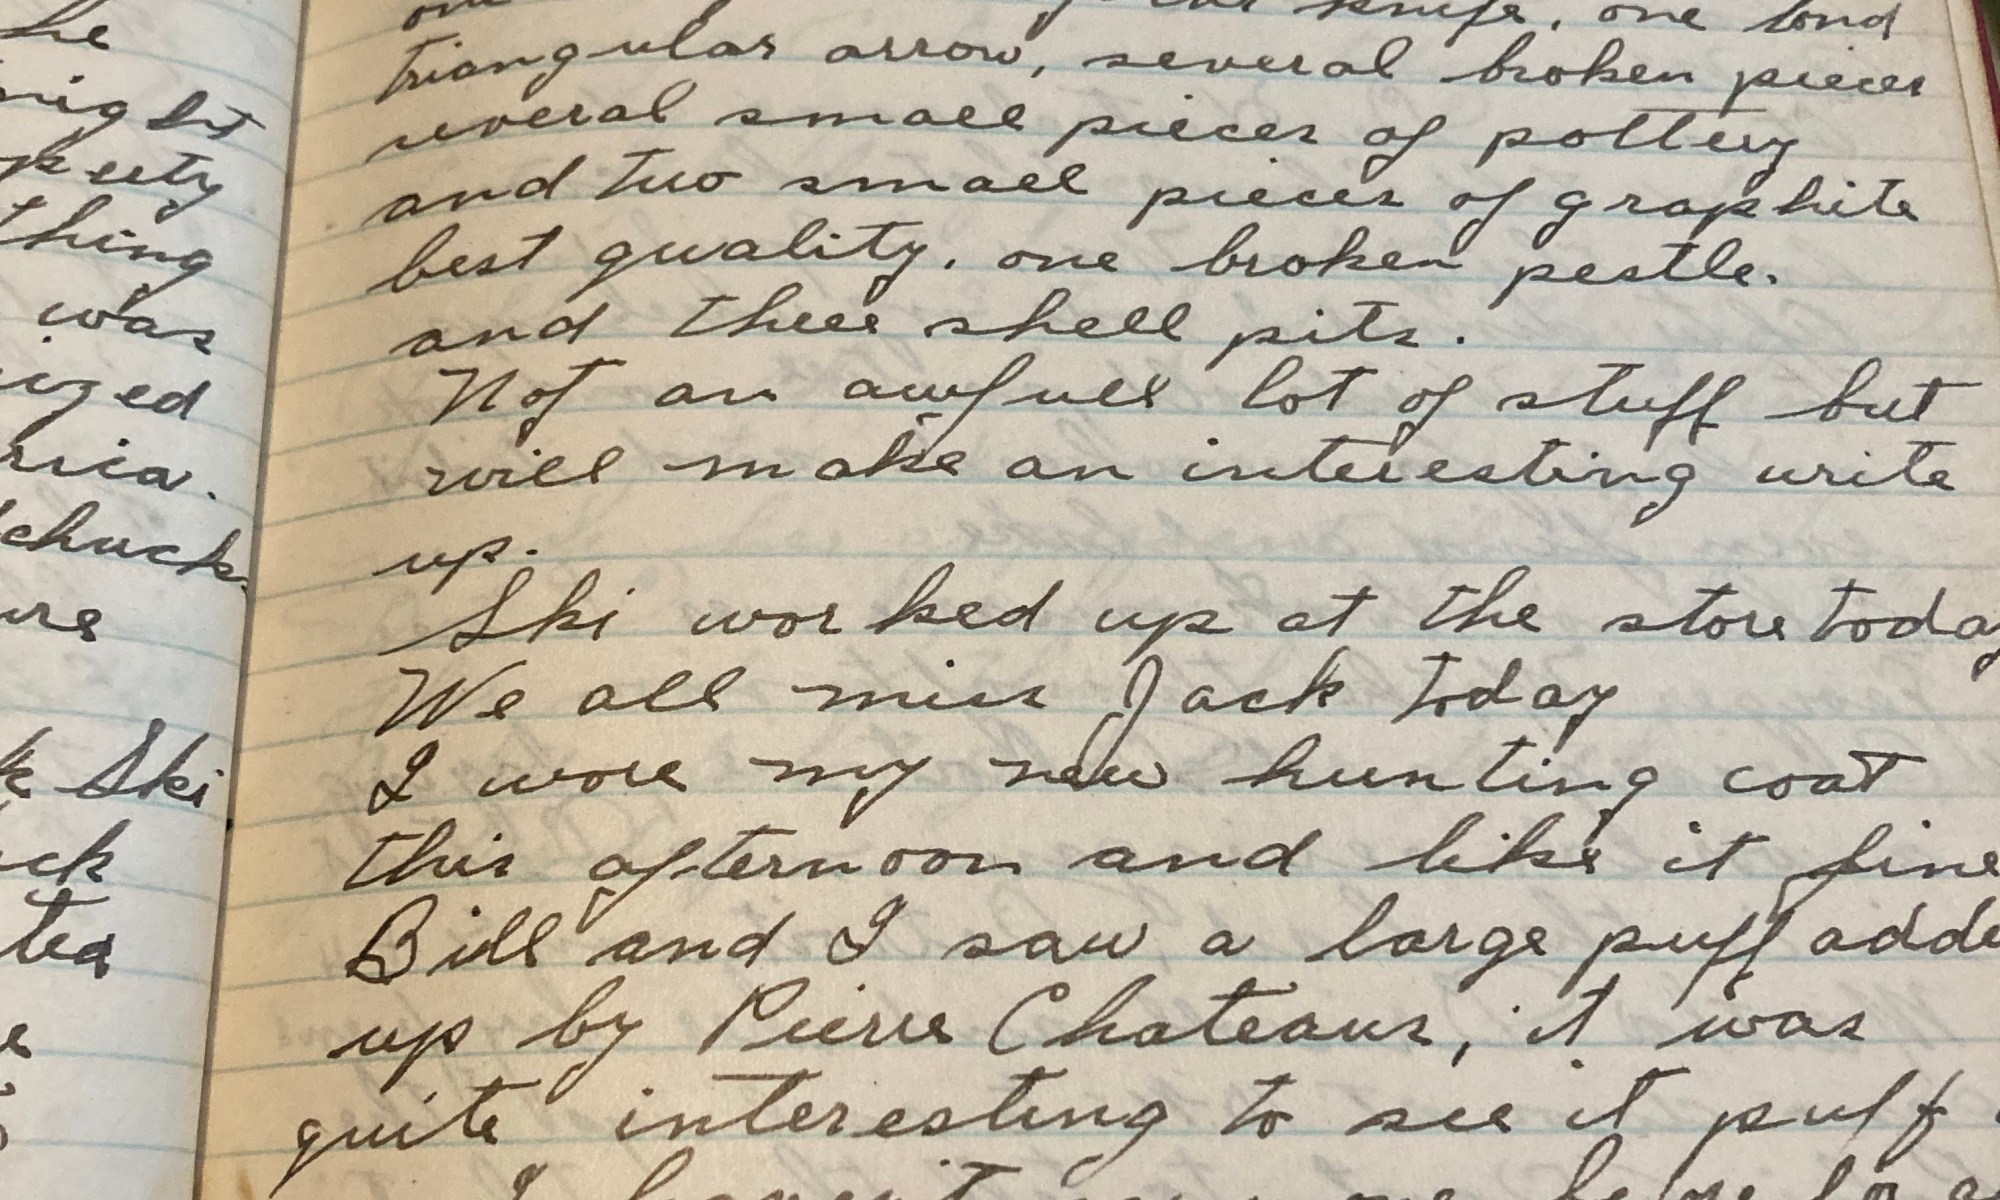 he
ight
thing
was
ized
chuck.
Ski
knife, one
triangular arrow, several broken pieces
several small pieces of pottery
and two small pieces of graphite
best quality. one broken pestle.
and three shell pits.
Not an awfull lot of stuff but
will make an interesting write
up.
Ski worked up at the store today
We all miss Jack today
I wore my new hunting coat
this afternoon and like it fine
Bill and I saw a large puff adde
up by Pierre Chateaus, it was
quite interesting to see it puff